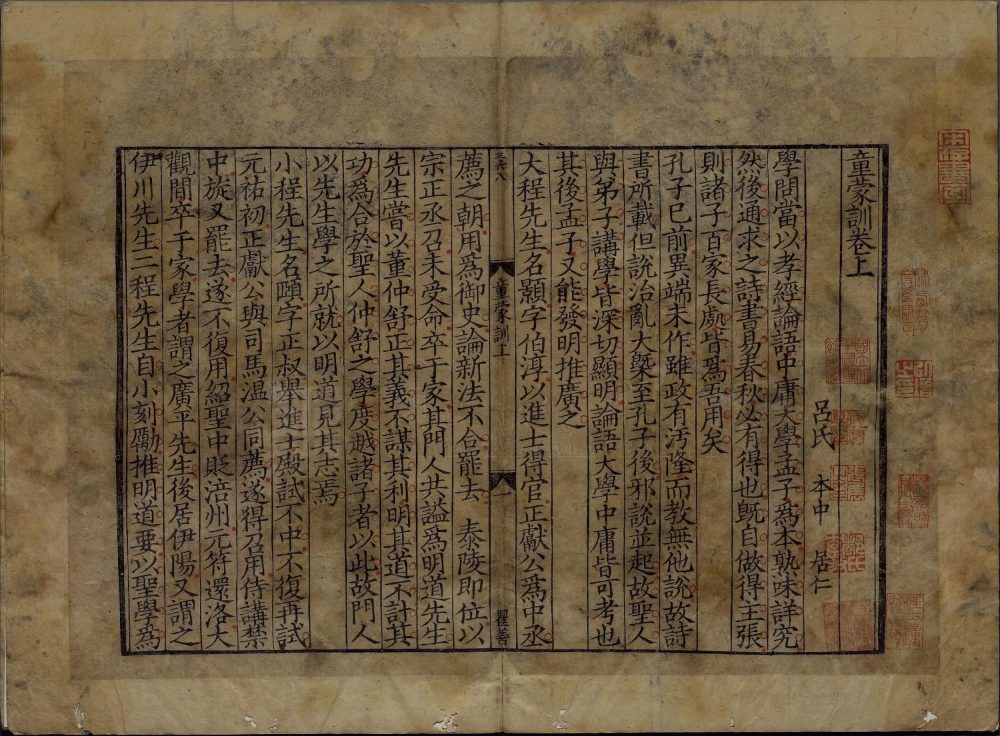 童蒙訓卷上
呂氏 本中 居仁
學問當以孝經論語中庸大學孟子爲本熟味詳究
然後通求之詩書易春秋必有得也旣自做得主張
則諸子百家長處皆爲吾用矣
孔子已前異端未作雖政有汚隆而教無他說故詩
書所載但說治亂大槩至孔子後邪說並起故聖人
與弟子講學皆深切顯明論語大學中庸皆可考也
其後孟子又能發明推廣之
大程先生名顥字伯淳以進士得官正獻公爲中丞
童蒙訓上
一
瞿善
薦之朝用爲御史論新法不合罷去 泰陵即位以
宗正丞召未受命卒于家其門人共謚爲明道先生
先生嘗以董仲舒正其義不謀其利明其道不計其
功爲合於聖人仲舒之學度越諸子者以此故門人
以先生學之所就以明道見其志焉
小程先生名頤字正叔舉進士殿試不中不復再試
元祐初正獻公與司馬溫公同薦遂得召用侍講禁
中旋又罷去遂不復用紹聖中貶涪州元符還洛大
觀間卒于家學者謂之廣平先生後居伊陽又謂之
伊川先生二程先生自小刻勵推明道要以聖學爲